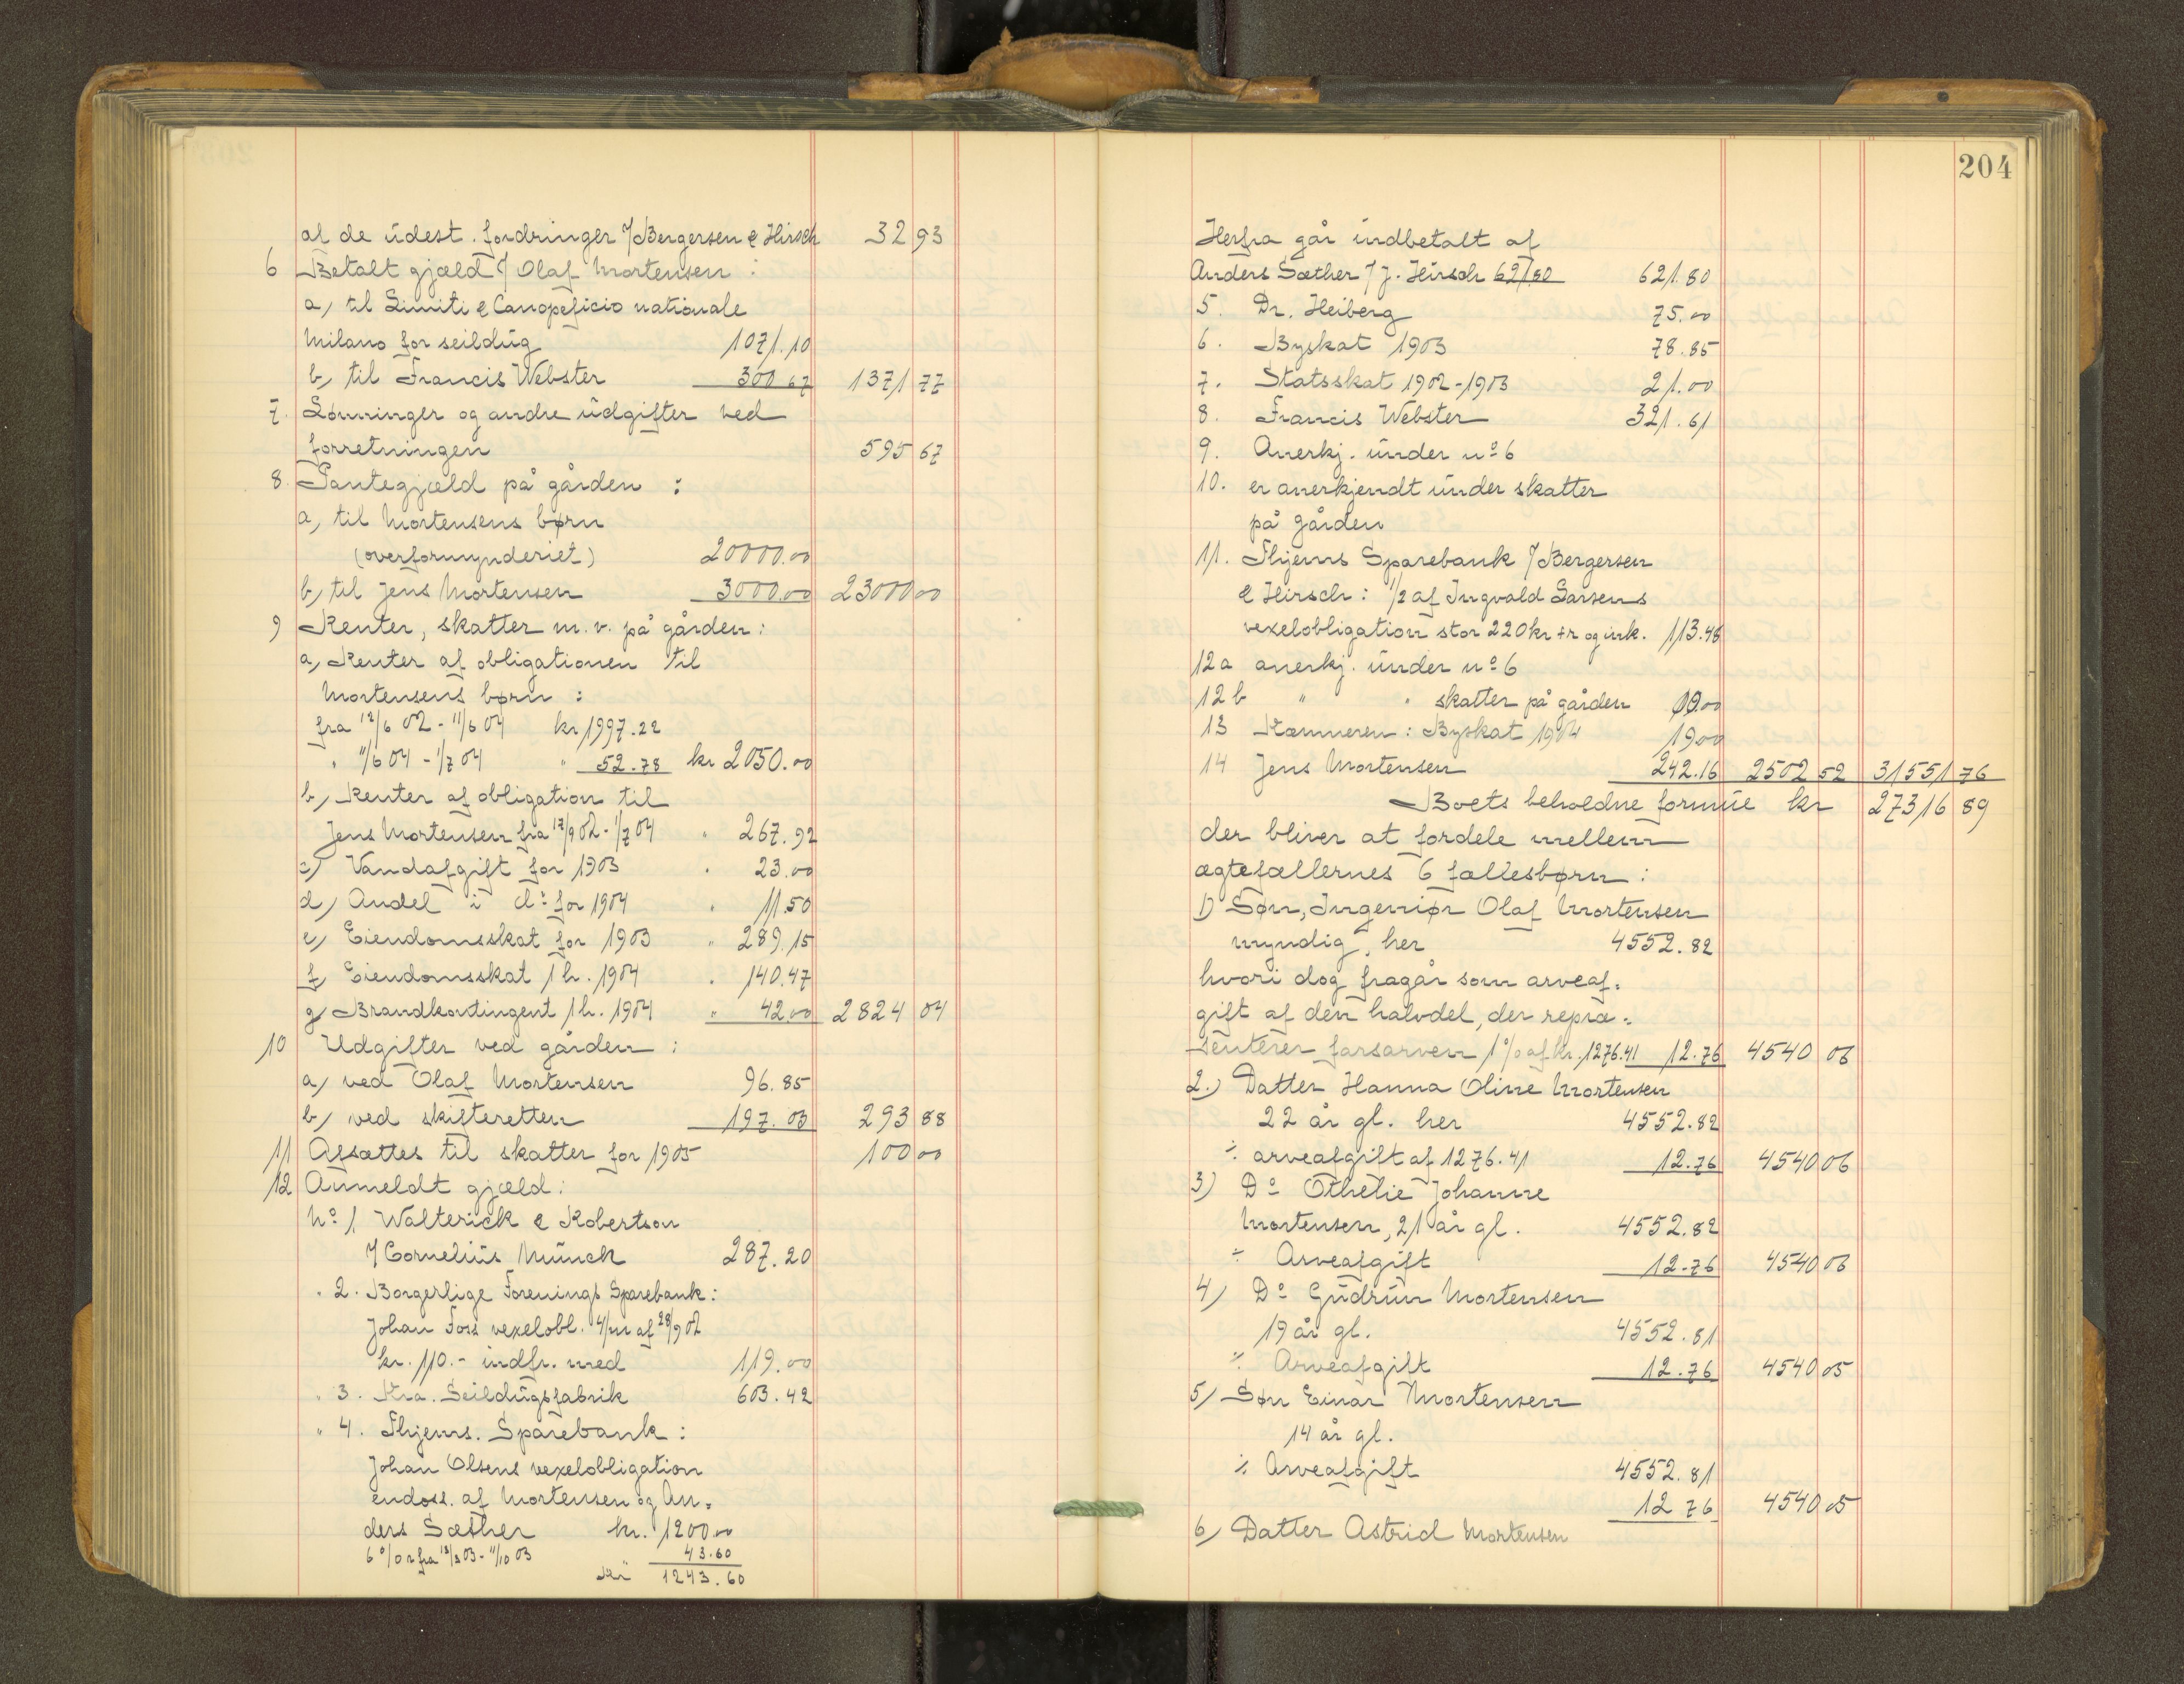 af de udest. fordringer 7/ Bergersen & Hirsch 32 93
6 Betalt gjæld 7/ Olaf Mortensen :
a, til Limiti & Canopeficio nationale
Milano for seildug 1071.10
b, til Francis Webster 300 67 1371 77
7. Lønninger og andre udgifter ved
forretningen 595 67
8. Pantegjæld på gården :
a, til Mortensens børn
(overformynderiet) 20000.00
b, til Jens Mortensen 3000.00 23000 00
9 Renter, skatter m.v. på gården:
a, Renter af obligationen til
Mortensens børn :
fra 12/6 02 - 11/6 04 kr 1997.22
" 11/6 04 - 1/7 04 " 52.78 kr 2050.00
b, Renter af obligation til
Jens Mortensen fra 17/9 02 - 1/7 04 " 267.92
c) Vandafgift for 1903 " 23.00
d, Andel i do for 1904 " 11.50
e, Eiendomsskat for 1903 " 289.15
f, Eiendomsskat 1 h. 1904 " 140.47
g, Brandkontingent 1 h. 1904 " 42.00 2824 04
10 Udgifter ved gården :
a, ved Olaf Mortensen 96.85
b, ved skifteretten 197.03 293 88
11 Afsættes til skatter for 1905 100 00
12 Anmeldt gjæld:
No 1 Walterick & Robertson
7/ Cornelius Münch 287.20
" 2. Borgerlige Forenings Sparebank:
Johan Foss vexelobl. 4/m af 28/9 02
kr. 110.- indfr. med 119.00
" 3. Kra. Seildugsfabrik 603.42
" 4. Thjems. Sparebank :
Johan Olsens vexelobligation
endoss. af Mortensen og An-
ders Sæther kr. 1200.00
6 % r fra 13/3 03 - 11/10 03 43.60
Kr 1243.60
204
Herfra går indbetalt af
Anders Sæther 7/ J. Hirsch 621/80 621.80
5. Dr. Heiberg 75.00
6. Byskat 1903 78.85
7. Statsskat 1902-1903 21.00
8. Francis Webster 321.61
9. Anerkj. under no 6
10. er anerkjendt under skatter
på gården
11. Thjems Sparebank 7/ Bergersen
& Hirsch: 1/2 af Ingvald Larsens
vexelobligation stor 220 kr + r og ink. 113.48
12a anerkj. under no 6
12 b " " skatter på gården 19.00
13 Kæmneren : Byskat 1904 19.00
14 Jens Mortensen 242.16 2502 52 31551 76
Boets beholdne formue kr 27316 89
der bliver at fordele mellem
ægtefællernes 6 fællesbørn :
1) Søn, Ingeniør Olaf Mortensen
myndig, her 4552.82
hvori dog fragår som arveaf-
gift af den halvdel, der repræ-
senterer farsarven 1 % af kr. 1276.41 12.76 4540 06
2.) Datter Hanna Oline Mortensen
22 år gl. her 4552.82
÷ arveafgift af 1276.41 12.76 4540 06
3) Do Othelie Johanne
Mortensen, 21 år gl. 4552.82
÷ Arveafgift 12.76 4540 06
4) Do Gudrun Mortensen
19 år gl. 4552.81
÷ Arveafgift 12.76 4540 05
5) Søn Einar Mortensen
14 år gl.
÷ Arveafgift 4552.81
12 76 4540 05
6) Datter Astrid Mortensen